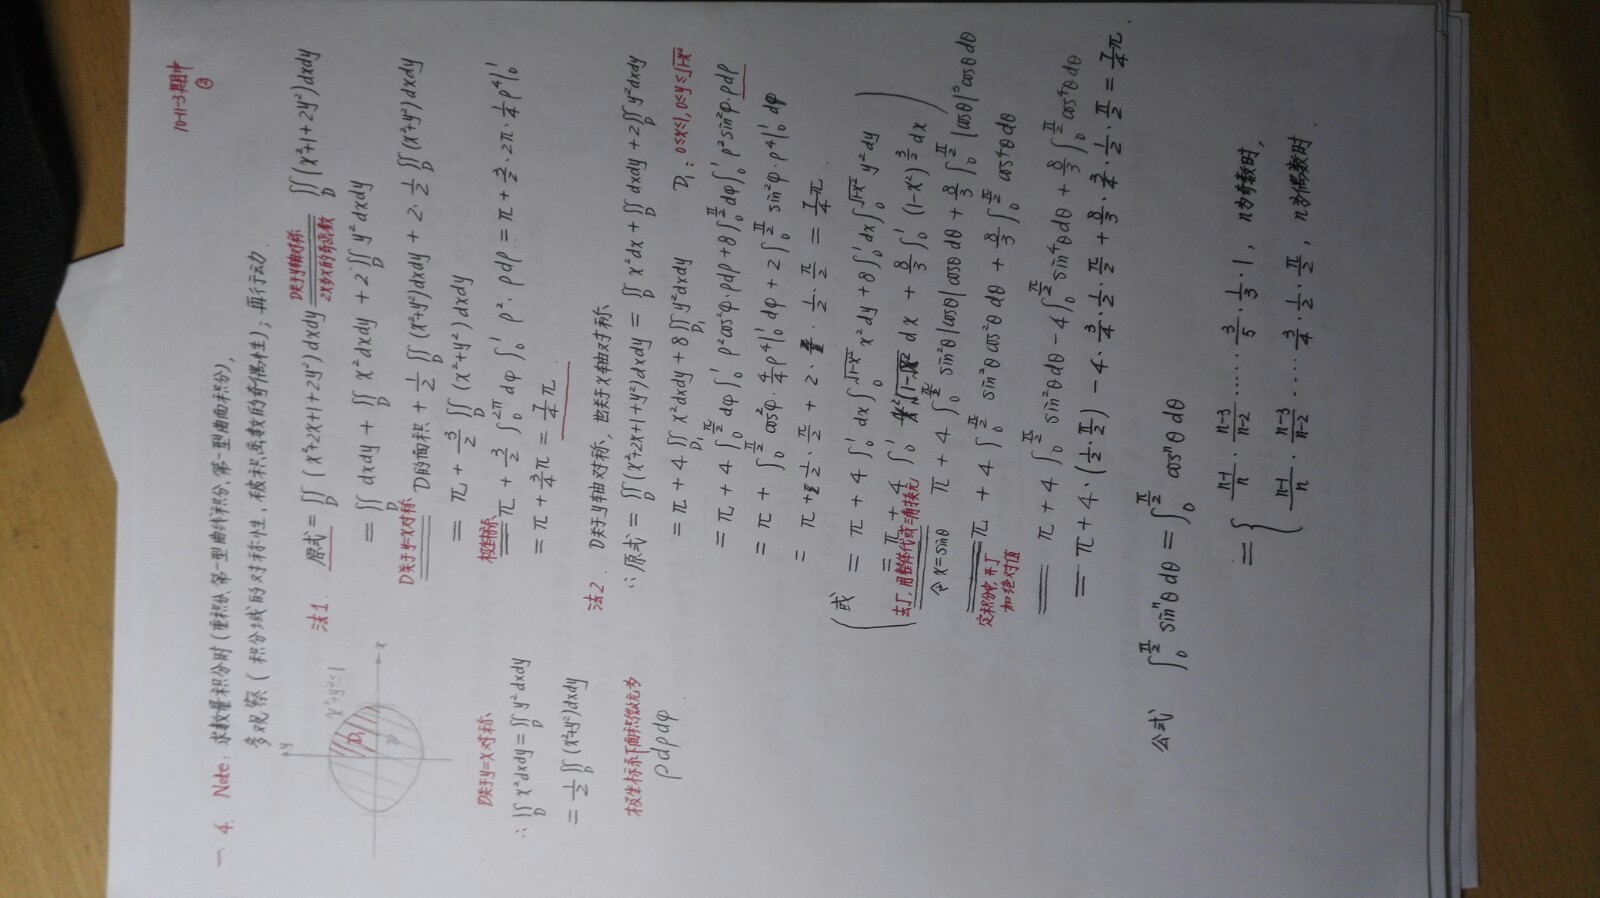 10-11-3期中
②
一. 4. Note: 求数量积分时(重积分、第一型曲线积分、第一型曲面积分),
多观察(积分域的对称性、被积函数的奇偶性); 再行动.
y
x²+y²≤1
D₁
D
x
法1. 原式=∬_D (x²+2x+1+2y²)dxdy =(D关于y轴对称, 2x为x的奇函数)= ∬_D (x²+1+2y²)dxdy
= ∬_D dxdy + ∬_D x²dxdy + 2∬_D y²dxdy
=(D关于y=x对称)= D的面积 + 1/2 ∬_D (x²+y²)dxdy + 2·1/2 ∬_D (x²+y²)dxdy
= π + 3/2 ∬_D (x²+y²)dxdy
=(极坐标)= π + 3/2 ∫_0^{2π} dφ ∫_0^1 ρ²·ρdρ = π + 3/2·2π·1/4 ρ⁴|_0^1
= π + 3/4 π = 7/4 π
D关于y=x对称
∴ ∬_D x²dxdy = ∬_D y²dxdy
= 1/2 ∬_D (x²+y²)dxdy
法2. D关于y轴对称, 也关于x轴对称.
∴ 原式 = ∬_D (x²+2x+1+y²)dxdy = ∬_D x²dx + ∬_D dxdy + 2∬_D y²dxdy
= π + 4∬_{D₁} x²dxdy + 8∬_{D₁} y²dxdy D₁: 0≤x≤1, 0≤y≤√(1-x²)
= π + 4∫_0^{π/2} dφ ∫_0^1 ρ²cos²φ·ρdρ + 8∫_0^{π/2} dφ ∫_0^1 ρ²sin²φ·ρdρ
= π + ∫_0^{π/2} cos²φ·4/4 ρ⁴|_0^1 dφ + 2∫_0^{π/2} sin²φ·ρ⁴|_0^1 dφ
= π + 1/2·π/2 + 2·1/2·π/2 = 7/4 π
极坐标系下面积微元为
ρdρdφ
(或 = π + 4∫_0^1 dx ∫_0^{√(1-x²)} x²dy + 8∫_0^1 dx ∫_0^{√(1-x²)} y²dy
= π + 4∫_0^1 x²√(1-x²) dx + 8/3 ∫_0^1 (1-x²)^{3/2} dx )
=(去√, 用整体代或三角换元, 令x=sinθ)= π + 4∫_0^{π/2} sin²θ|cosθ|cosθdθ + 8/3 ∫_0^{π/2} |cosθ|³cosθdθ
=(定积分中, 开√加绝对值)= π + 4∫_0^{π/2} sin²θcos²θdθ + 8/3 ∫_0^{π/2} cos⁴θdθ
= π + 4∫_0^{π/2} sin²θdθ - 4∫_0^{π/2} sin⁴θdθ + 8/3 ∫_0^{π/2} cos⁴θdθ
= π + 4·(1/2·π/2) - 4·3/4·1/2·π/2 + 8/3·3/4·1/2·π/2 = 7/4 π.
公式 ∫_0^{π/2} sinⁿθdθ = ∫_0^{π/2} cosⁿθdθ
= { (n-1)/n · (n-3)/(n-2) ····· 3/5 · 1/3 · 1, n为奇数时,
(n-1)/n · (n-3)/(n-2) ····· 3/4 · 1/2 · π/2, n为偶数时.